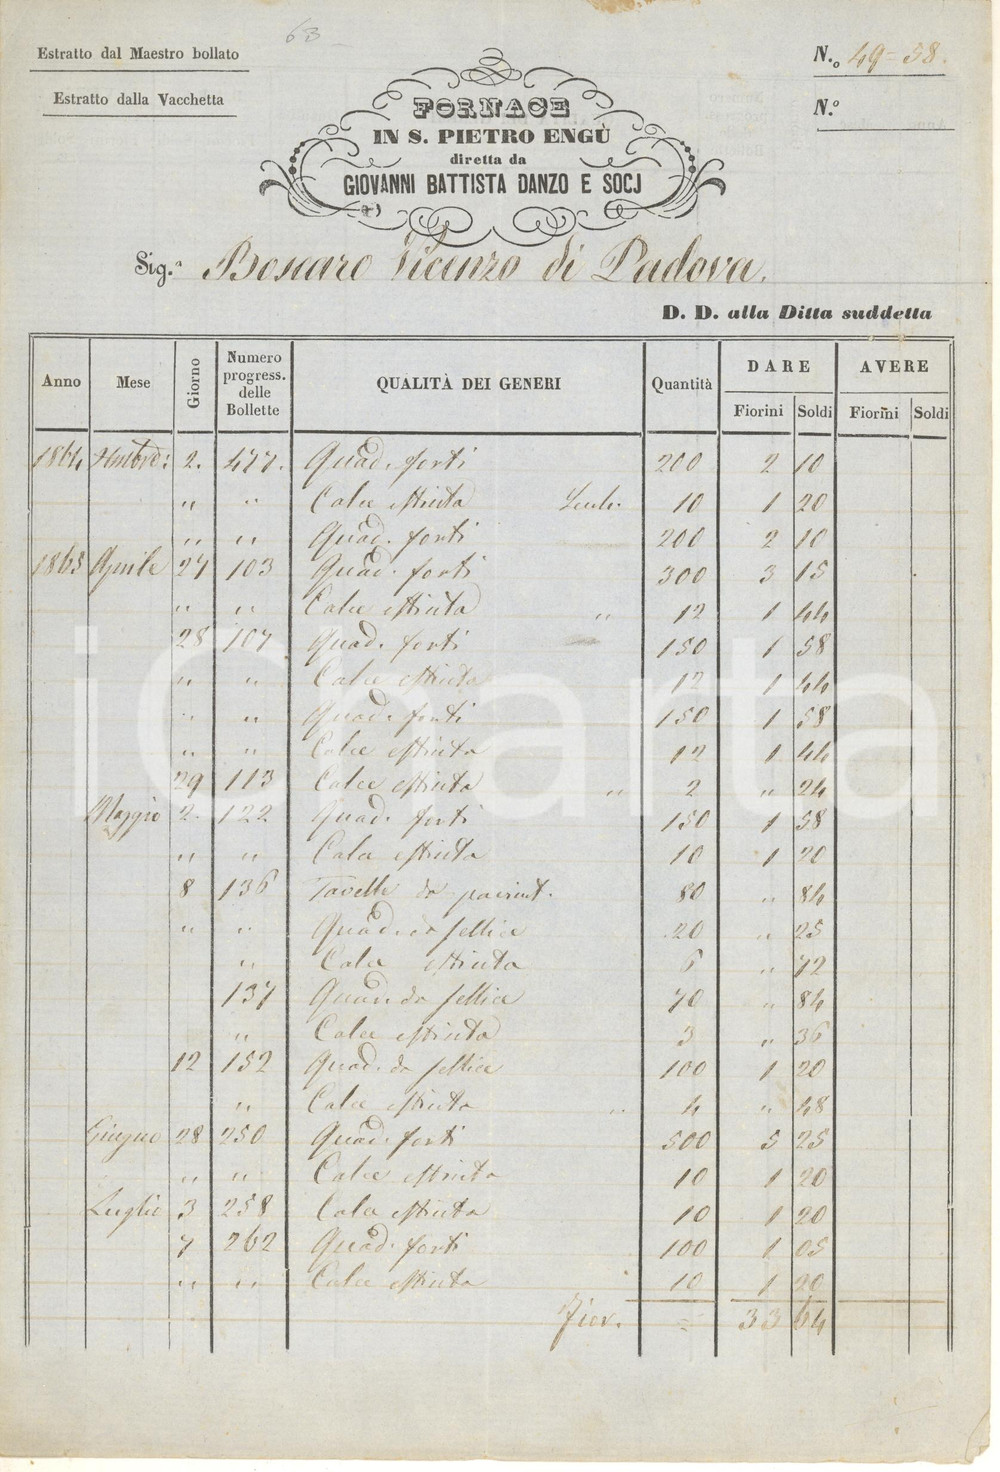 63
Estratto dal Maestro bollato
Estratto dalla Vacchetta
N.o 49=58.
N.o
FORNACE
IN S. PIETRO ENGÙ
diretta da
GIOVANNI BATTISTA DANZO E SOCJ
Sig.r Boscaro Vicenzo di Padova.
D. D. alla Ditta suddetta
Anno Mese Giorno Numero progress. delle Bollette QUALITÀ DEI GENERI Quantità DARE AVERE
Fiorini Soldi Fiorini Soldi
1864 2. 477. Quad. forti 200 2 10
" " Calce 10 1 20
" " Quad. forti 200 2 10
1865 Aprile 27 103 Quad. forti 300 3 15
" " Calce " 12 1 44
28 107 Quad. forti 150 1 58
" " Calce 12 1 44
" " Quad. forti 150 1 58
" " Calce 12 1 44
29 113 Calce " 2 " 24
Maggio 2. 122 Quad. forti 150 1 58
" " Calce 10 1 20
8 136 Tavelle da 80 " 84
" " Quad. da 20 " 25
" Calce 6 " 72
137 Quad. da 70 " 84
" Calce 3 " 36
12 152 Quad. da 100 1 20
" Calce " 4 " 48
Giugno 28 250 Quad. forti 500 5 25
" " Calce 10 1 20
Luglio 3 258 Calce 10 1 20
7 262 Quad. forti 100 1 05
" " Calce 10 1 20
Fior. = 33 64
iCharta